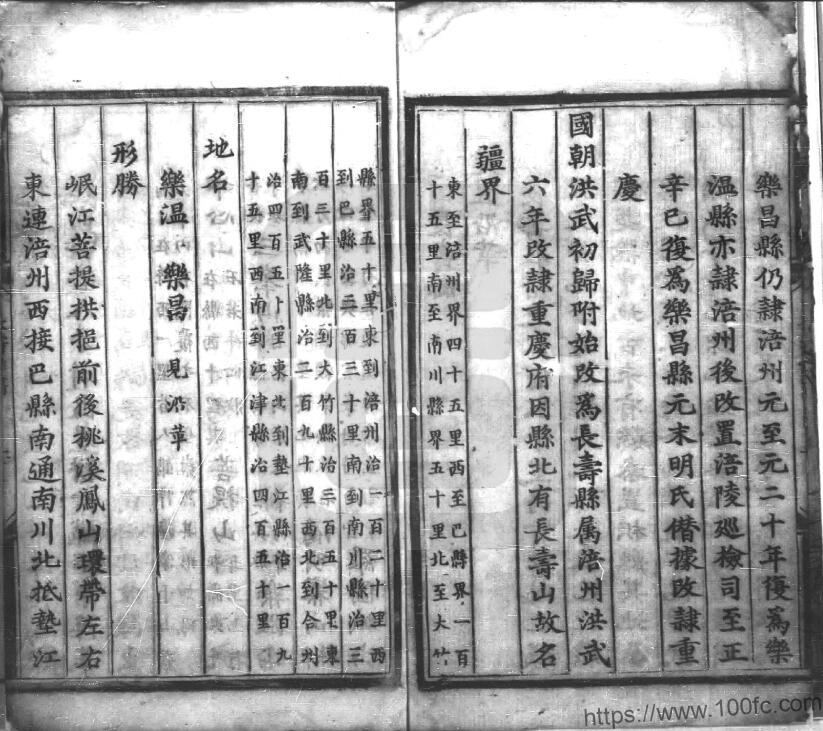 樂昌縣仍隷涪州元至元二十年復爲樂
温縣亦隷涪州後改置涪陵廵檢司至正
辛巳復爲樂昌縣元末明氏僣據改隷重
慶
國朝洪武初歸附始改爲長壽縣属涪州洪武
六年改隷重慶府因縣北有長壽山故名
疆界
東至涪州界四十五里西至巴縣界一百
十五里南至南川縣界五十里北至大竹
縣界五十里東到涪州治一百二十里西
到巴縣治三百三十里南到南川縣治三
百三十里北到大竹縣治三百五十里東
南到武隆縣治二百九十里西北到合州
治四百五十里東北到墊江縣治一百九
十五里西南到江津縣治四百五十里
地名
樂温 樂昌 見沿革
形勝
岷江菩提拱挹前後桃溪鳳山環帶左右
東連涪州西接巴縣南通南川北抵墊江
https://www.100fc.com